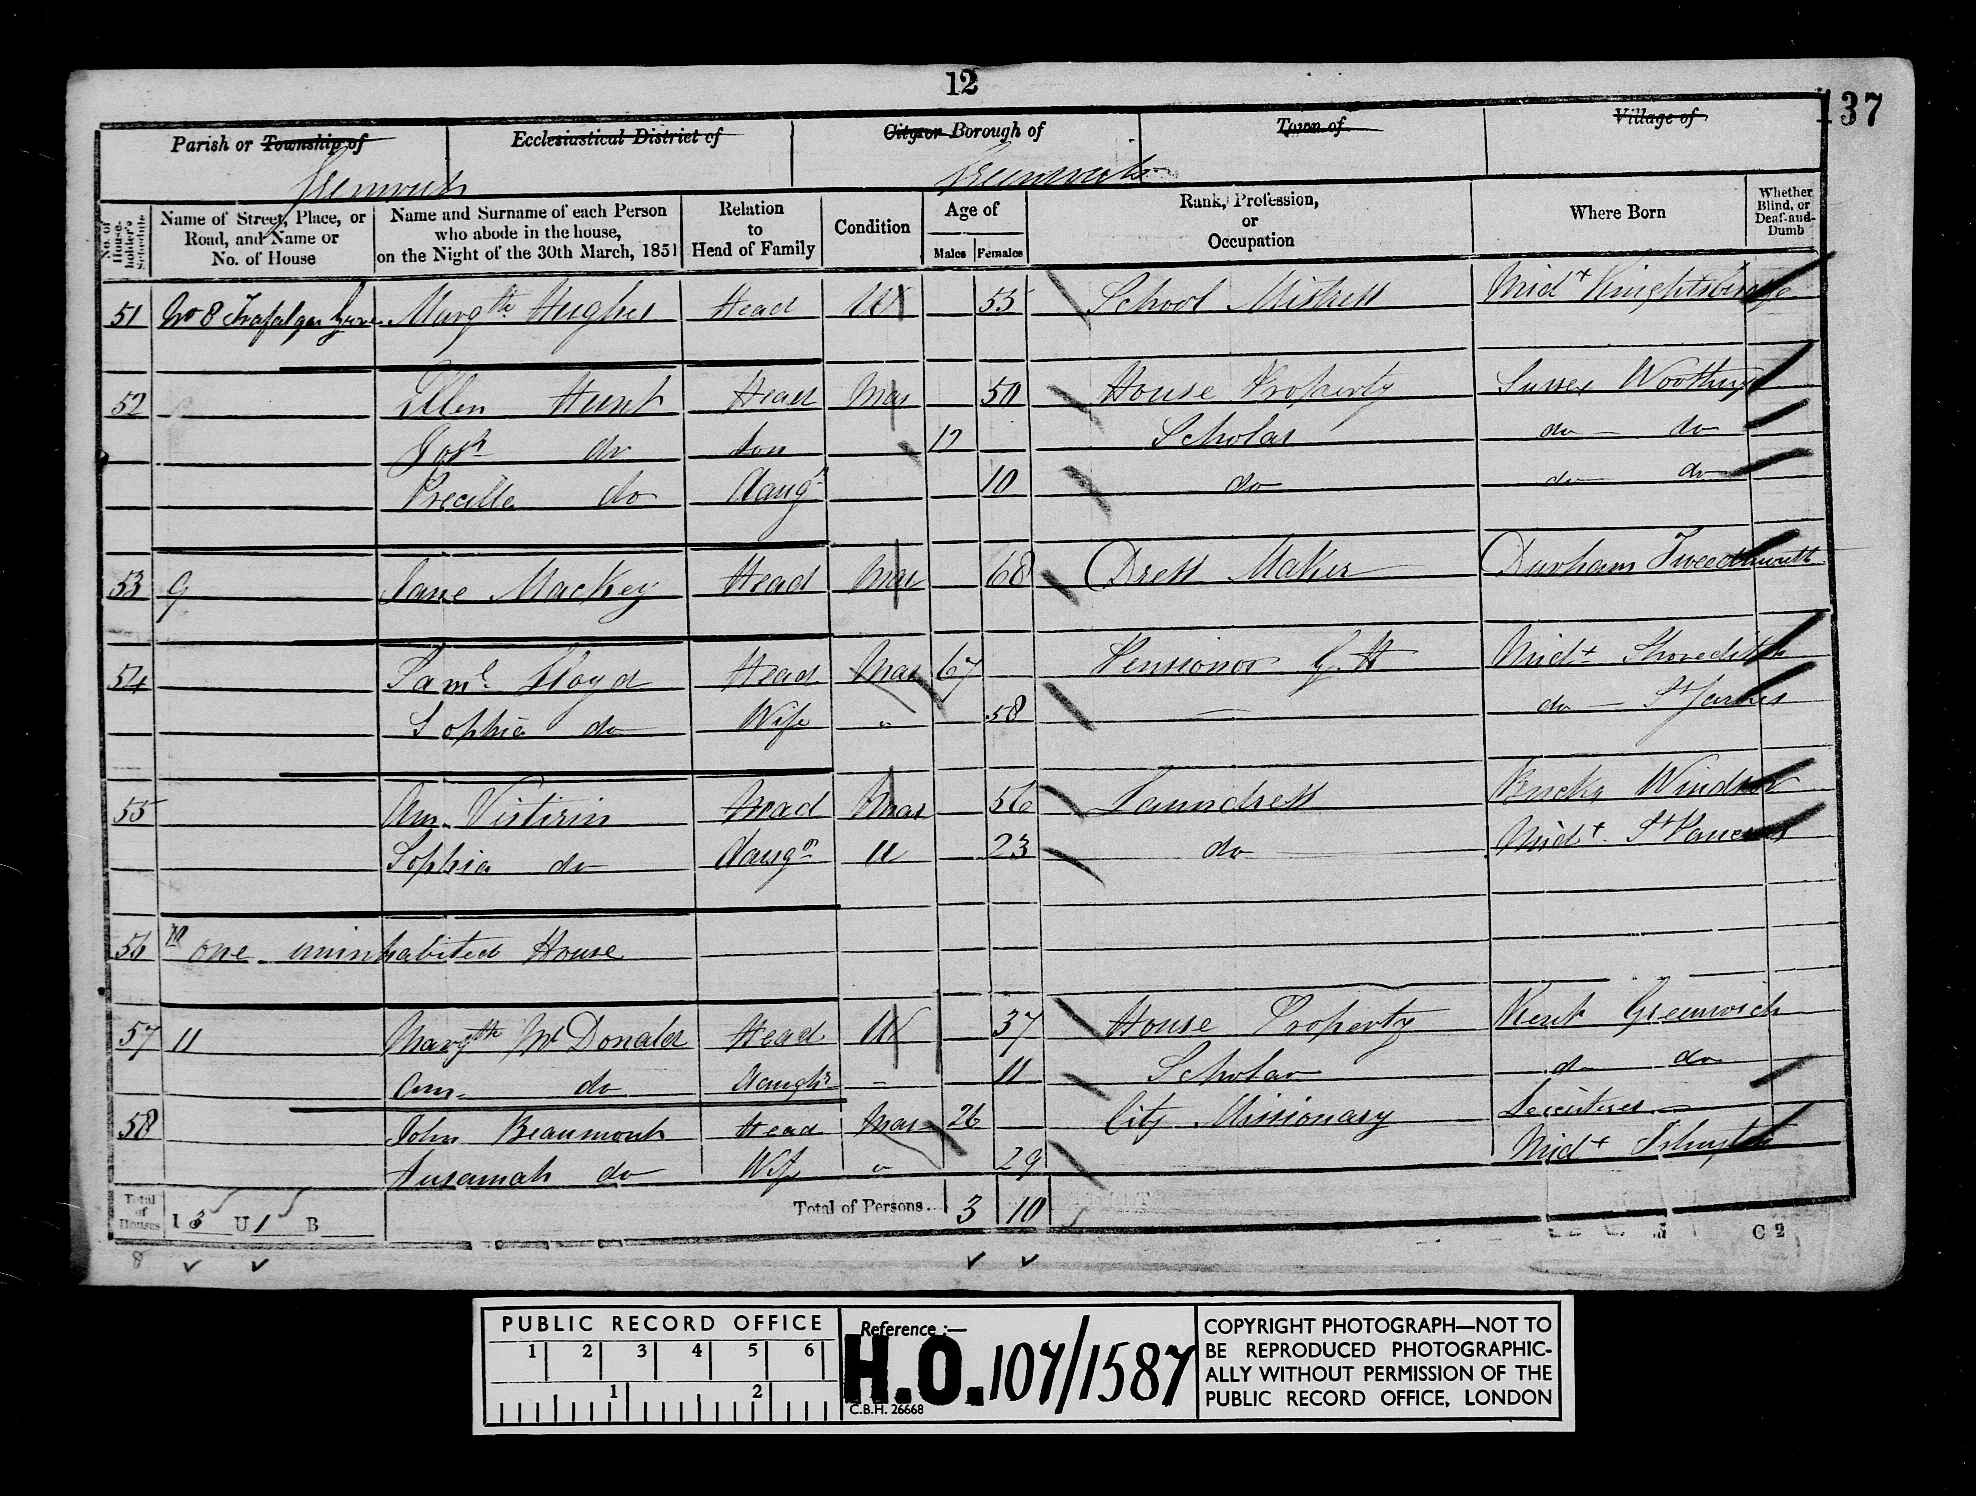 12
137
Parish or Township of
Ecclesiastical District of
City or Borough of
Town of
Village of
Greenwich
Greenwich
No. of House-holder's Schedule
Name of Street, Place, or Road, and Name or No. of House
Name and Surname of each Person who abode in the house, on the Night of the 30th March, 1851
Relation to Head of Family
Condition
Age of
Males
Females
Rank, Profession, or Occupation
Where Born
Whether Blind, or Deaf-and-Dumb
51 No 8 Trafalgar Margth Hughes Head W 55 School Mistress Midx Knightsbridge
52 Ellen Hunt Head Mar 50 House Property Sussex Worthing
Josh do Son 12 Scholar do do
do Daugr 10 do do do
53 9 Jane Mackey Head Mar 68 Dress Maker Durham Tweedmouth
54 Saml Lloyd Head Mar 67 Pensioner G H Midx Shoreditch
Sophia do Wife " 58 — do St James
55 Ann Head Mar 56 Laundress Bucks Windsor
Sophia do Daugr U 23 do Midx St Pancras
56 10 one uninhabited House
57 11 Margth McDonald Head W 37 House Property Kent Greenwich
Ann do Daughr - 11 Scholar do do
58 John Beaumont Head Mar 26 City Missionary Leicester
Susannah do Wife " 29 Midx
Total of Houses I 3 U 1 B
Total of Persons.. 3 10
C 2
8
PUBLIC RECORD OFFICE
1 2 3 4 5 6
1 2
Reference :—
H.O. 107/1587
C.B.H. 26668
COPYRIGHT PHOTOGRAPH—NOT TO
BE REPRODUCED PHOTOGRAPHIC-
ALLY WITHOUT PERMISSION OF THE
PUBLIC RECORD OFFICE, LONDON